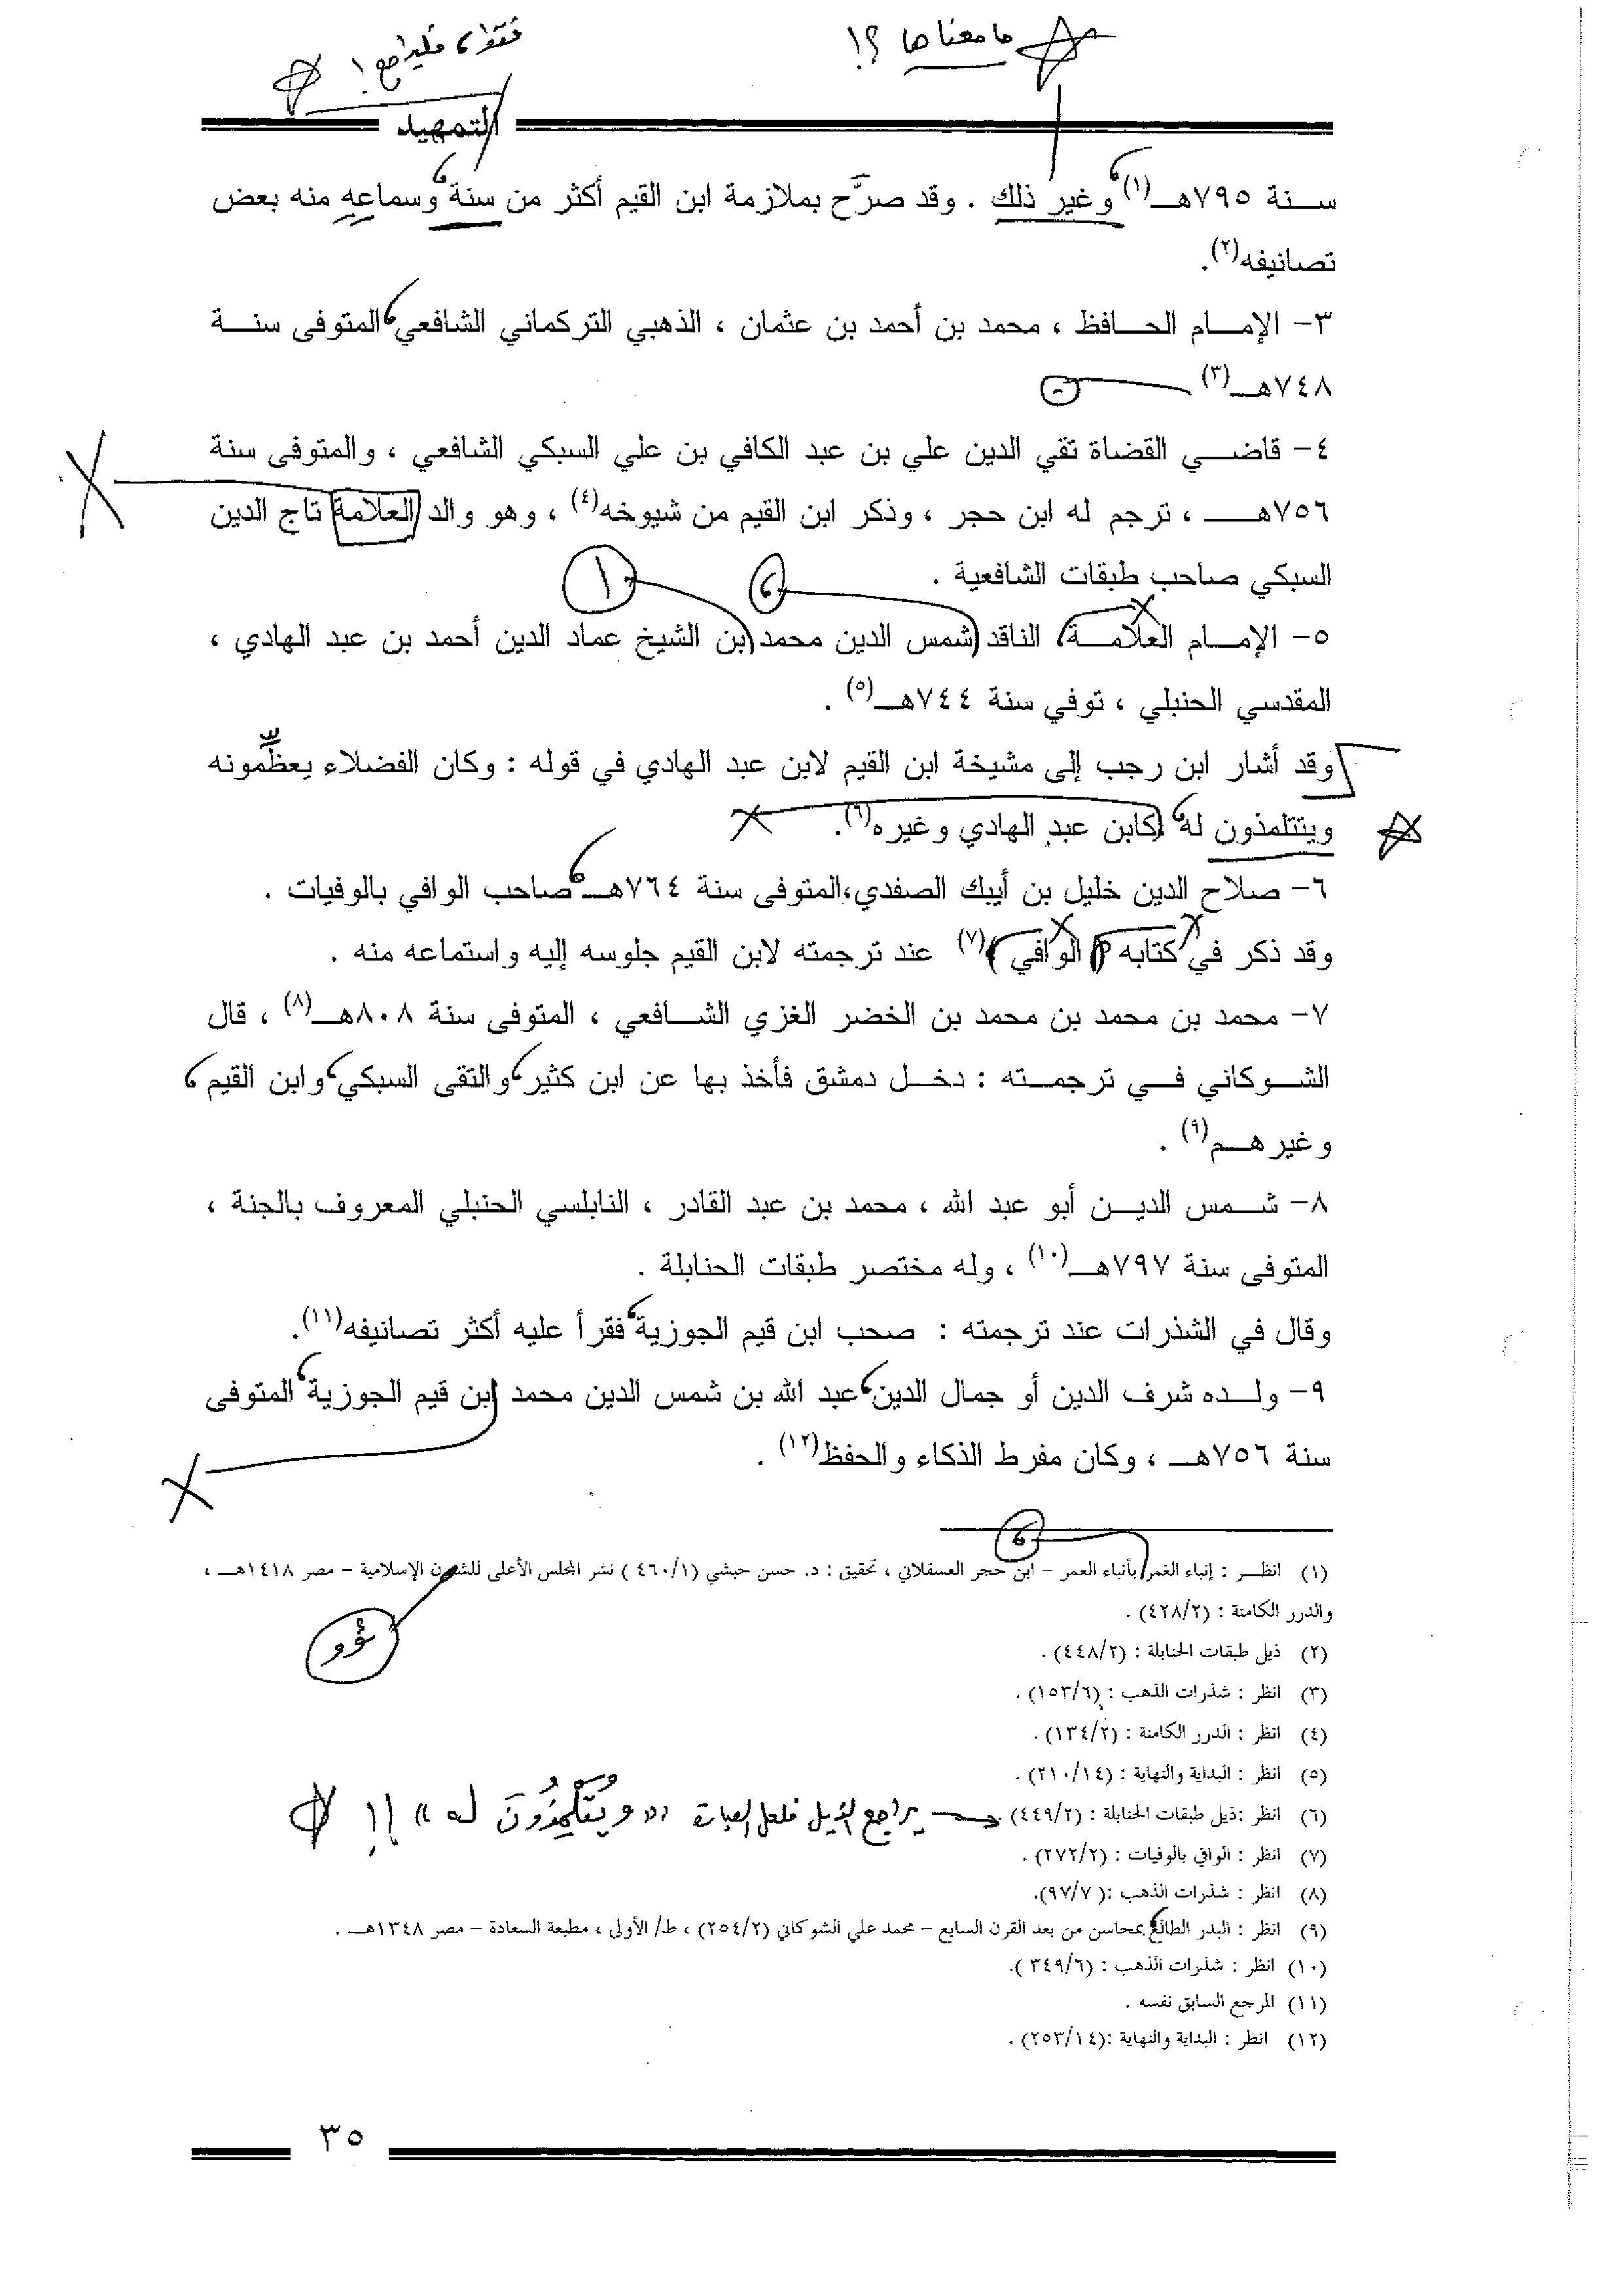 ما معناها ؟!
التمهيد
سنة ٧٩٥هـ(١) وغير ذلك . وقد صرَّح بملازمة ابن القيم أكثر من سنة وسماعه منه بعض
تصانيفه(٢).
٣- الإمام الحافظ ، محمد بن أحمد بن عثمان ، الذهبي التركماني الشافعي المتوفى سنة
٧٤٨هـ(٣)
٤- قاضي القضاة تقي الدين علي بن عبد الكافي بن علي السبكي الشافعي ، والمتوفى سنة
٧٥٦هـ ، ترجم له ابن حجر ، وذكر ابن القيم من شيوخه(٤) ، وهو والد العلامة تاج الدين
السبكي صاحب طبقات الشافعية .
٥- الإمام العلامة، الناقد شمس الدين محمد بن الشيخ عماد الدين أحمد بن عبد الهادي ،
المقدسي الحنبلي ، توفي سنة ٧٤٤هـ(٥) .
وقد أشار ابن رجب إلى مشيخة ابن القيم لابن عبد الهادي في قوله : وكان الفضلاء يعظِّمونه
ويتتلمذون له كابن عبد الهادي وغيره(٦).
٦- صلاح الدين خليل بن أيبك الصفدي،المتوفى سنة ٧٦٤هـ صاحب الوافي بالوفيات .
وقد ذكر في كتابه الوافي (٧) عند ترجمته لابن القيم جلوسه إليه واستماعه منه .
٧- محمد بن محمد بن محمد بن الخضر الغزي الشافعي ، المتوفى سنة ٨٠٨هـ(٨) ، قال
الشوكاني في ترجمته : دخل دمشق فأخذ بها عن ابن كثير والتقى السبكي وابن القيم
وغيرهم(٩) .
٨- شمس الدين أبو عبد الله ، محمد بن عبد القادر ، النابلسي الحنبلي المعروف بالجنة ،
المتوفى سنة ٧٩٧هـ(١٠) ، وله مختصر طبقات الحنابلة .
وقال في الشذرات عند ترجمته : صحب ابن قيم الجوزية فقرأ عليه أكثر تصانيفه(١١).
٩- ولده شرف الدين أو جمال الدين عبد الله بن شمس الدين محمد ابن قيم الجوزية المتوفى
سنة ٧٥٦هـ ، وكان مفرط الذكاء والحفظ(١٢) .
(١) انظر : إنباء الغمر بأنباء العمر – ابن حجر العسقلاني ، تحقيق : د. حسن حبشي (٤٦٠/١ ) نشر المجلس الأعلى للشئون الإسلامية – مصر ١٤١٨هـ ،
والدرر الكامنة : (٤٢٨/٢) .
ئوو
(٢) ذيل طبقات الحنابلة : (٤٤٨/٢) .
(٣) انظر : شذرات الذهب : (١٥٣/٦) .
(٤) انظر : الدرر الكامنة : (١٣٤/٢) .
(٥) انظر : البداية والنهاية : (٢١٠/١٤) .
(٦) انظر :ذيل طبقات الحنابلة : (٤٤٩/٢). يراجع الذيل فلعل العبارة «ويُتَلْمِذُونَ له» !!
(٧) انظر : الوافي بالوفيات : (٢٧٢/٢) .
(٨) انظر : شذرات الذهب :( ٩٧/٧).
(٩) انظر : البدر الطالع بمحاسن من بعد القرن السابع – محمد علي الشوكاني (٢٥٤/٢) ، ط/ الأولى ، مطبعة السعادة – مصر ١٣٤٨هـ .
(١٠) انظر : شذرات الذهب : (٣٤٩/٦ ).
(١١) المرجع السابق نفسه .
(١٢) انظر : البداية والنهاية :(٢٥٣/١٤) .
٣٥